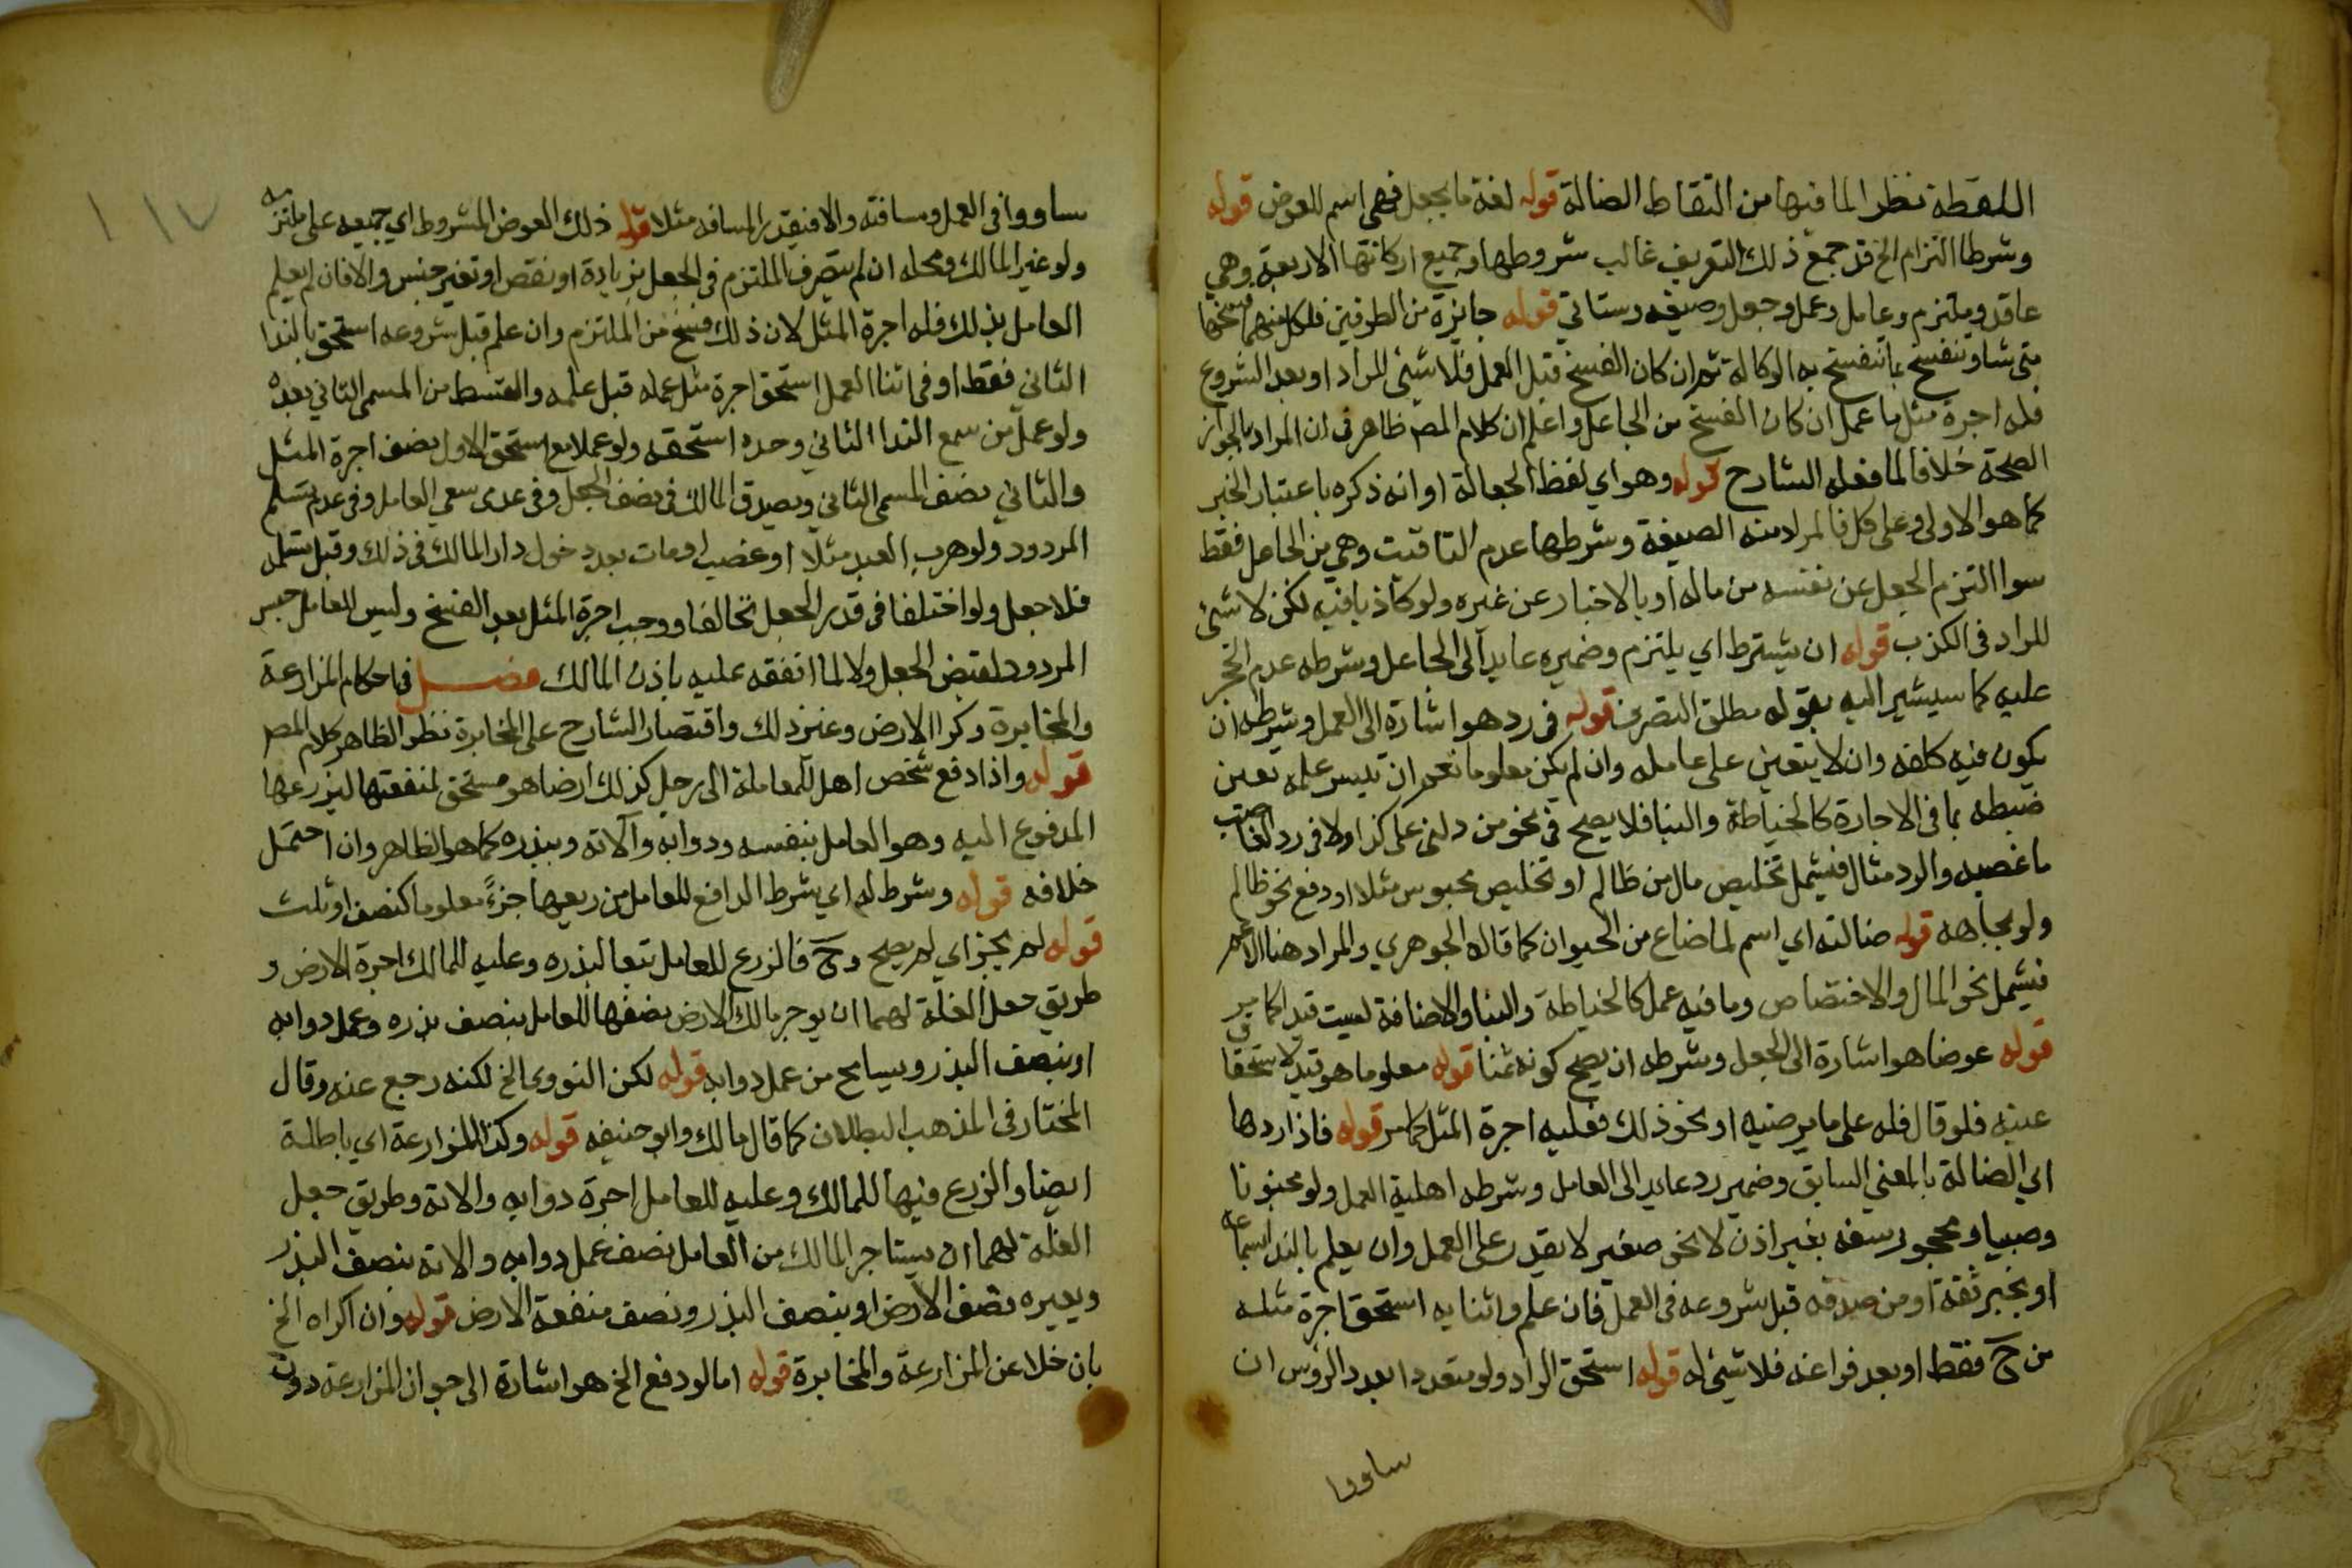 اللقطة نظرا لما فيها من التقاط الضالة قوله لغة ما يجعل فهي اسم للعوض قوله
وشرطا التزام الخ قد جمع ذلك التعريف غالب شروطها وجميع اركانها الاربعة وهي
عاقد وملتزم وعامل وعمل وجعل وصيغه وستاتي قوله جايزة من الطرفين فلكل منهما فسخها
متى شا وتنفسخ بما تنفسخ به الوكالة ثم ان كان الفسخ قبل العمل فلا شئ للراد او بعد الشروع
فله اجرة مثل ما عمل ان كان الفسخ من الجاعل واعلم ان كلام المص ظاهر في ان المراد بالجواز
الصحة خلافا لما فعله الشارح قوله وهو اي لفظ الجعالة او انه ذكره باعتبار الخبر
كما هو الاولى وعلى كل فالمراد منه الصيغة وشرطها عدم التاقيت وهي من الجاعل فقط
سوا التزم الجعل عن نفسه من ماله او بالاخبار عن غيره ولو كاذبا فيه لكن لا شئ
للراد في الكذب قوله ان يشترط اي يلتزم وضميره عايد الى الجاعل وشرطه عدم الحجر
عليه كما سيشير اليه بقوله مطلق التصرف قوله في رد هو اشارة الى العمل وشرطه ان
يكون فيه كلفه وان لا يتعين على عامله وان لم يكن معلوما نعم ان تيسر علمه تعين
ضبطه بما في الاجارة كالخياطة والبنا فلا يصح في نحو من دلني على كذا ولا في رد الغاصب
ما غصبه والرد مثال فيشمل تخليص مال من ظالم او تخليص محبوس مثلا او دفع نحو ظالم
ولو بجاهه قوله ضالته اي اسم لما ضاع من الحيوان كما قاله الجوهري والمراد هنا الاعم
فيشمل نحو المال والاختصاص وما فيه عمل كالخياطة والبنا والاضافة ليست قيدا كما مر
قوله عوضا هو اشارة الى الجعل وشرطه ان يصح كونه ثمنا قوله معلوما هو قيد لاستحقاق
عينه فلو قال فله على ما يرضيه او نحو ذلك فعليه اجرة المثل كما مر قوله فاذا ردها
اي الضالة بالمعنى السابق وضمير رد عايد الى العامل وشرطه اهلية العمل ولو مجنونا
وصبيا ومحجور سفه بغير اذن لا نحو صغير لا يقدر على العمل وان يعلم بالندا بسماعه
او بخبر ثقة او من صدقه قبل شروعه في العمل فان علم في اثنايه استحق اجرة مثله
من ح فقط او بعد فراغه فلا شئ له قوله استحق الراد ولو متعددا بعدد الرؤس ان
ساووا
ساووا في العمل ومسافته والا فبقدر المسافه مثلا قوله ذلك العوض المشروط اي جميعه على ملتزمه
ولو غير المالك ومحله ان لم يتصرف الملتزم في الجعل بزيادة او نقص او تغير جنس والا فان لم يعلم
العامل بذلك فله اجرة المثل لان ذلك فسخ من الملتزم وان علم قبل شروعه استحق بالندا
الثاني فقط او في اثنا العمل استحق اجرة مثل عمله قبل علمه والقسط من المسمى الثاني بعده
ولو عمل من سمع الندا الثاني وحده استحقه ولو عملا معا استحق الاول نصف اجرة المثل
والثاني نصف المسمى الثاني ويصدق المالك في نصف الجعل وفي عدم سعي العامل وفي عدم تسلم
المردود ولو هرب العبد مثلا او غصب او مات بعد دخول دار المالك في ذلك وقبل تسلمه
فلا جعل ولو اختلفا في قدر الجعل تحالفا ووجب اجرة المثل بعد الفسخ وليس للعامل حبس
المردود لقبض الجعل ولا لما انفقه عليه باذن المالك فصل في احكام المزارعة
والمخابرة وكرا الارض وغير ذلك واقتصار الشارح على المخابرة نظرا لظاهر كلام المص
قوله واذا دفع شخص اهل للمعاملة الى رجل كذلك ارضا هو مستحق لمنفعتها ليزرعها
المدفوع اليه وهو العامل بنفسه ودوابه وآلاته وببذره كما هو الظاهر وان احتمل
خلافه قوله وشرط له اي شرط الدافع للعامل من ريعها جزءً معلوما كنصف او ثلث
قوله لم يجز اي لم يصح وح فالزرع للعامل تبعا لبذره وعليه للمالك اجرة الارض و
طريق جعل الغلة لهما ان يوجر مالك الارض نصفها للعامل بنصف بذره وعمل دوابه
او بنصف البذر ويسامح من عمل دوابه قوله لكن النووي الخ لكنه رجع عنه وقال
المختار في المذهب البطلان كما قال مالك وابو حنيفه قوله وكذا المزارعة اي باطلة
ايضا والزرع فيها للمالك وعليه للعامل اجرة دوابه والاته وطريق جعل
الغلة لهما ان يستاجر المالك من العامل نصف عمل دوابه والاته بنصف البذر
ويعيره نصف الارض او بنصف البذر ونصف منفعة الارض قوله وان اكراه الخ
بان خلا عن المزارعة والمخابرة قوله اما لو دفع الخ هو اشارة الى جواز المزارعة دون
١١٧